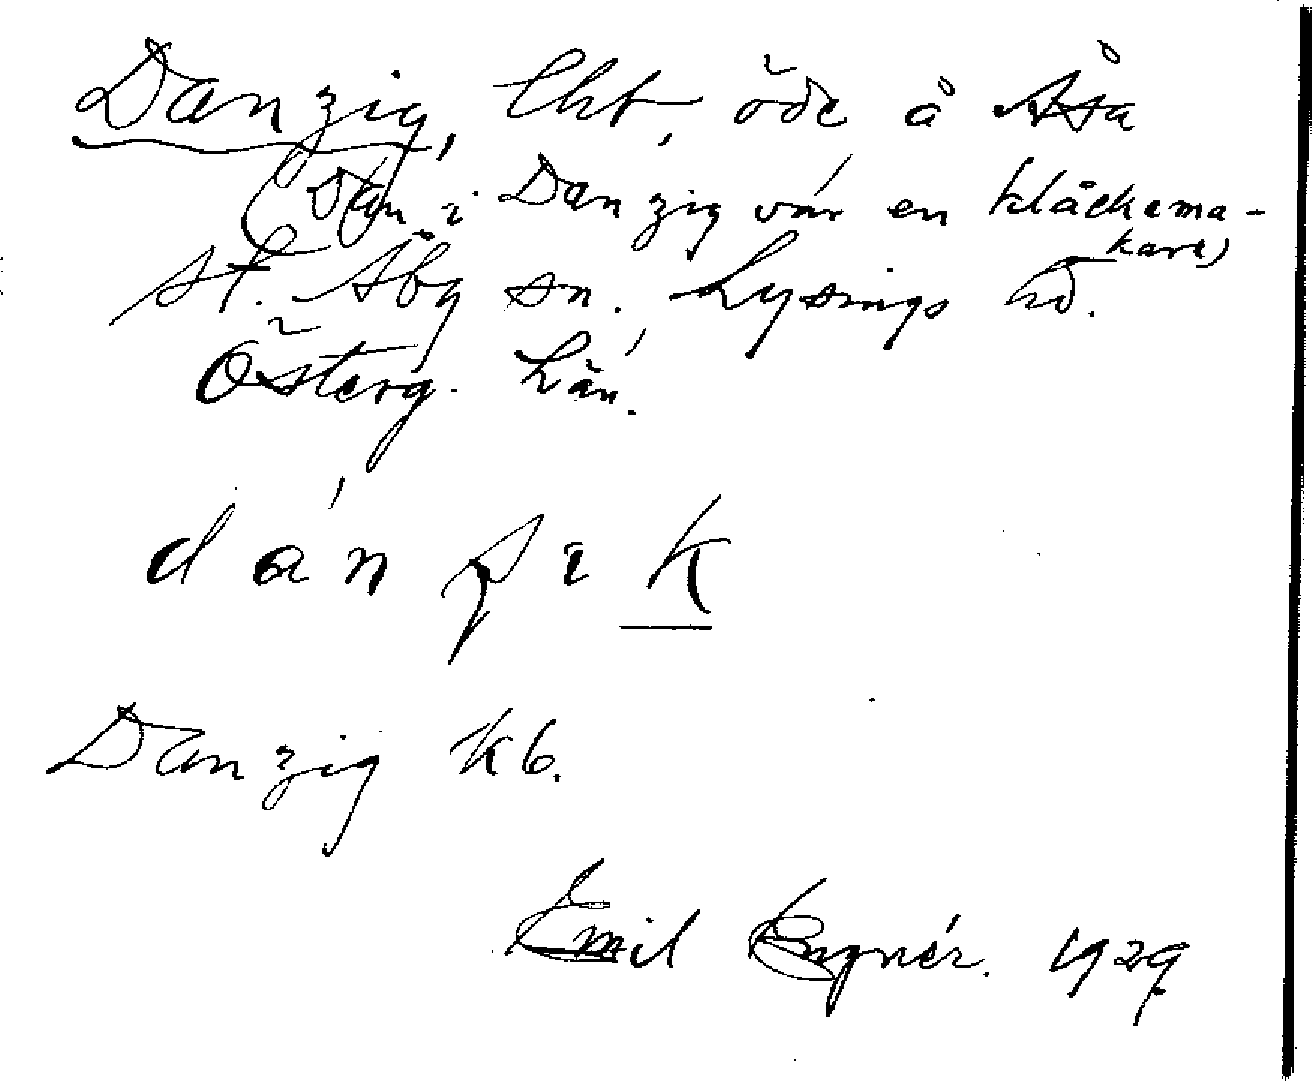 Danzig, lht, öde å Åsa
(Han i Danzig var en klåckema-
kare)
st. Åby sn. Lysings hd.
Österg. Län.
dánsik
Danzig kb.
Emil Engnér. 1929